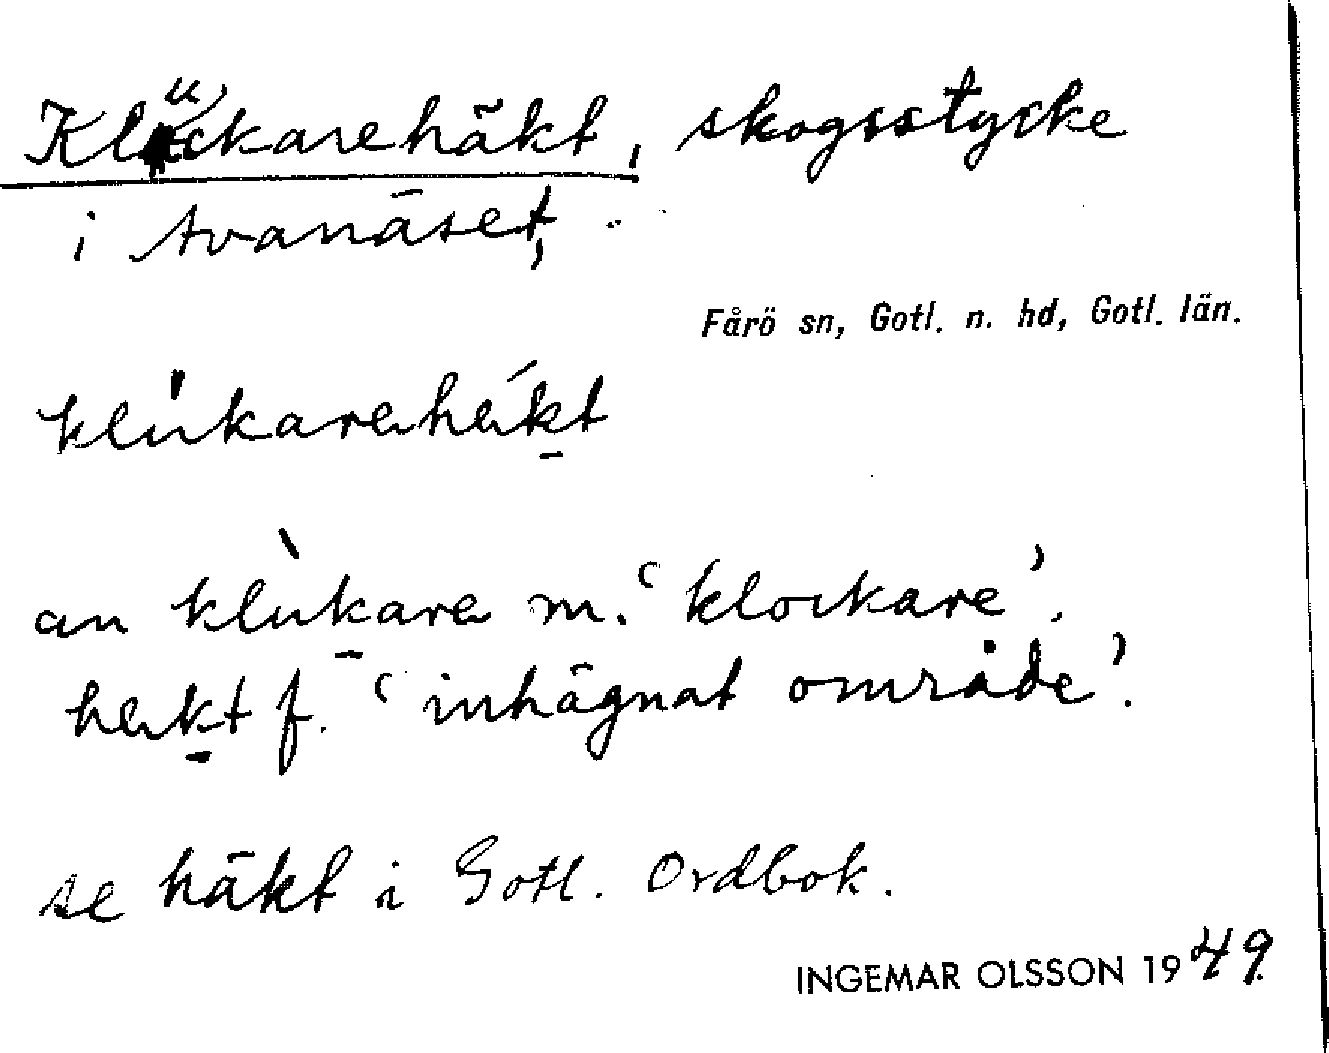 Kluckarehäkt, skogsstycke
i Avanäset,
Fårö sn, Gotl. n. hd, Gotl. län.
klukarahäkt
an klùkara m. ‘klockare’.
häkt f. ‘inhägnat område’.
se häkt i Gotl. Ordbok.
INGEMAR OLSSON 1949